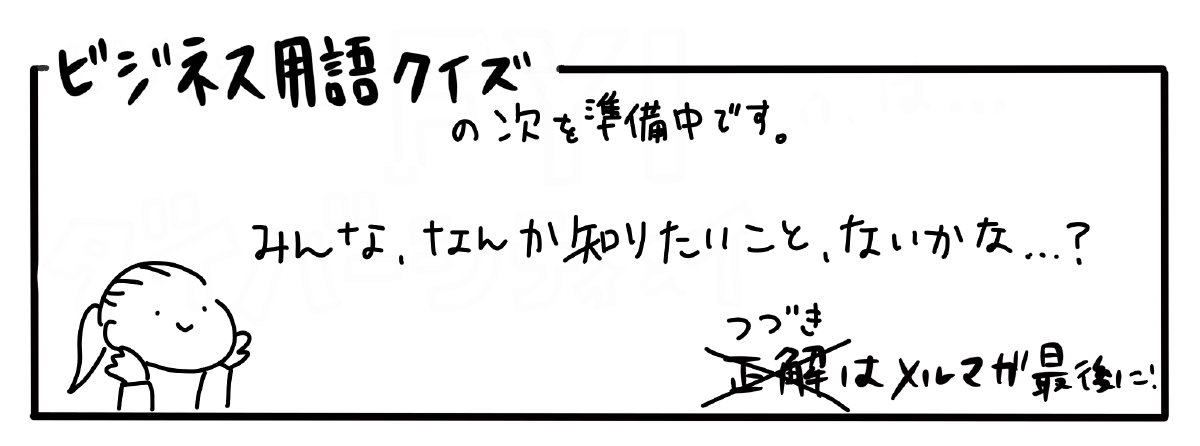 ビジネス用語クイズ
の次を準備中です。
みんな、なんか知りたいこと、ないかな…?
つづき
正解はメルマガ最後に!